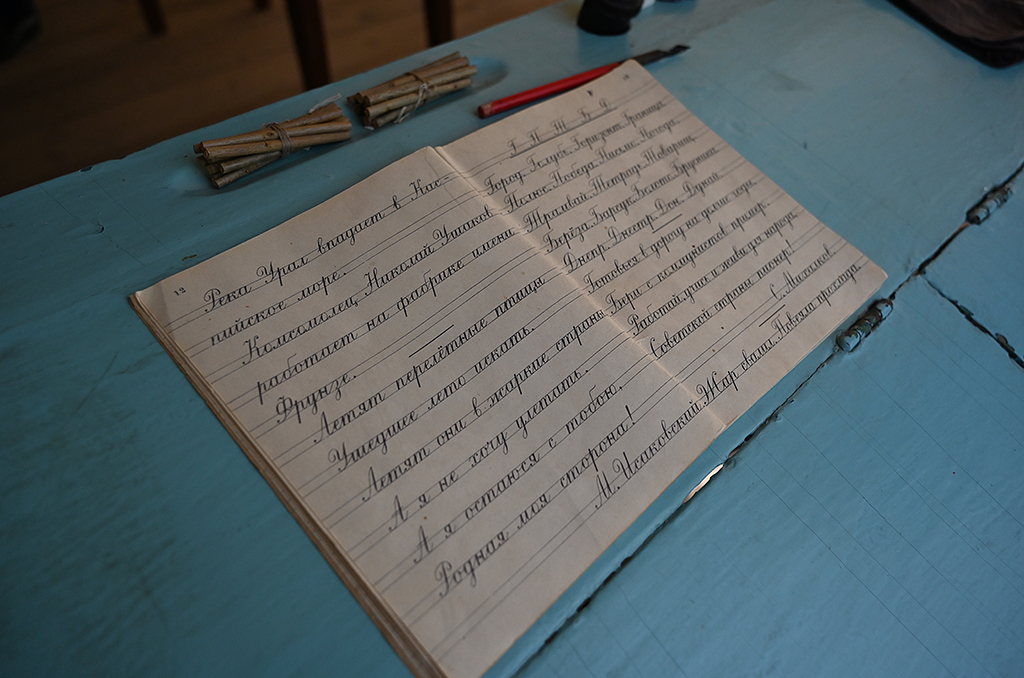 12
Река Урал впадает в Кас-
пийское море.
Комсомолец Николай Ушаков
работает на фабрике имени
Фрунзе.
Летят перелётные птицы
Ушедшее лето искать.
Летят они в жаркие страны,
А я не хочу улетать.
А я остаюся с тобою,
Родная моя сторона!
М. Исаковский
Г П Т Б Д
Город. Голубь. Горизонт. Граница.
Полюс. Победа. Письмо. Погода.
Трамвай. Тетрадь. Товарищ.
Берёза. Барсук. Болото. Брусника.
Днепр. Днестр. Дон. Дунай.
Готовься в дорогу на долгие годы,
Бери с коммунистов пример,
Работай, учись и живи для народа,
Советской страны пионер!
С. Михалков.
Жар свалил. Повеяла прохлада.